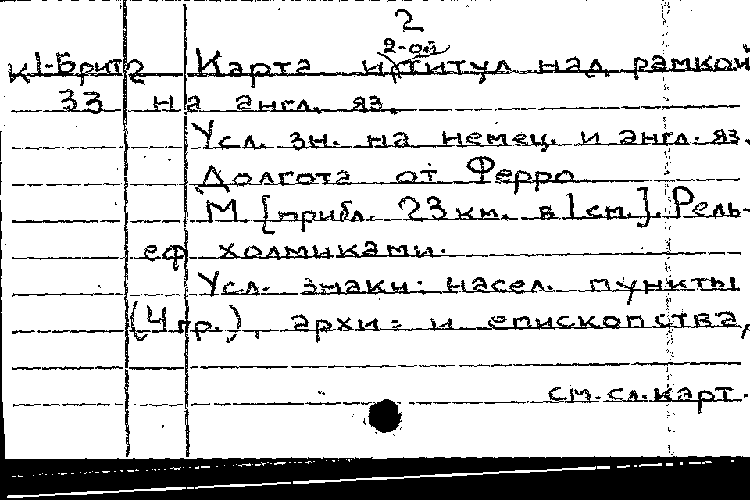 2
2-ой
К1-Брит2 Карта и титул над рамкой
33 на англ. яз.
Усл. зн. на немец. и англ. яз.
Долгота от Ферро
М [прибл. 23 км. в 1 см.]. Рель-
еф холмиками.
Усл. знаки: насел. пункты
(4 гр.), архи= и епископства,
см. сл. карт.